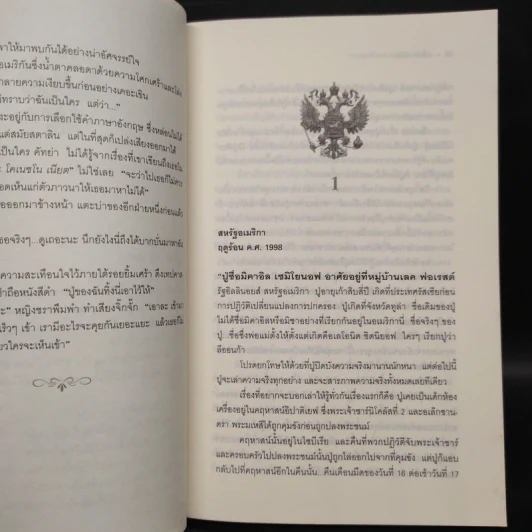 าให้มาพบกันได้อย่างน่าอัศจรรย์ใจ
อเมริกันซึ่งน้ำตาคลอตาด้วยความโศกเศร้าและ
ลายความเงียบขึ้นก่อนอย่างเคอะเขิน
ทราบว่าฉันเป็นใคร แต่ว่า..."
ะอยู่กับการเลือกใช้คำภาษาอังกฤษ ซึ่งหล่อนไม่ได้
แต่สมัยสตาลิน แต่ในที่สุดก็เปล่งเสียงออกมาได้
เป็นใคร คัทย่า ไม่ได้รู้จากเรื่องที่เขาเขียนถึงเธอใน
โคเนชโน เนียต" ไม่ใช่เลย "จะว่าไปเธอก็ไม่ควร
อดเห็นแก่ตัวภาวนาให้เธอมาหาไม่ได้"
ออกมาข้างหน้า แตะบ่าของอีกฝ่ายหนึ่งก่อนแล้ว
ธอจริงๆ...ดูเถอะนะ นึกยังไงนี่ถึงได้บากบั่นมาหาฉัน
ความสะเทือนใจไว้ภายใต้รอยยิ้มเศร้า ดึงเทปคาส
ถือหนังสีดำ "ปู่ของฉันทิ้งนี่เอาไว้ให้"
" หญิงชราพึมพำ ทำเสียงจิ๊กจั๊ก "เอาละ เข้ามา
ร็วๆ เข้า เรามีอะไรจะคุยกันเยอะแยะ แล้วเธอก็
ยวใครจะเห็นเข้า"
1
สหรัฐอเมริกา
ฤดูร้อน ค.ศ. 1998
"ปู่ชื่อมิคาอิล เซมิโยนอฟ อาศัยอยู่ที่หมู่บ้านเลค ฟอเรสต์
รัฐอิลลินอยส์ สหรัฐอเมริกา ปู่อายุเก้าสิบสี่ปี เกิดที่ประเทศรัสเซียก่อน
การปฏิวัติเปลี่ยนแปลงการปกครอง ปู่เกิดที่จังหวัดทูล่า ชื่อเดิมของปู่
ไม่ได้ชื่อมิคาอิลหรือมิชาอย่างที่เรียกกันอยู่ในอเมริกานี่ ชื่อจริงๆ ของ
ปู่...ชื่อซึ่งพ่อแม่ตั้งให้ตั้งแต่เกิดคือเลโอนิด ชิดนียอฟ ใครๆ เรียกปู่ว่า
ลียอนก้า
โปรดยกโทษให้ด้วยที่ปู่ปิดบังความจริงมานานนักหนา แต่ต่อไปนี้
ปู่จะเล่าความจริงทุกอย่าง และจะสารภาพความจริงทั้งหมดเลยทีเดียว
เรื่องที่อยากจะบอกเล่าให้รู้ทั่วกันเรื่องแรกก็คือ ปู่เคยเป็นเด็กห้อง
เครื่องอยู่ในคฤหาสน์อิปาติเยฟ ซึ่งพระเจ้าซาร์นิโคลัสที่ 2 และอเล็กซาน-
ดรา พระมเหสีได้ถูกคุมขังก่อนถูกปลงพระชนม์
คฤหาสน์นั้นอยู่ในไซบีเรีย และคืนที่พวกปฏิวัติจับพระเจ้าซาร์
และครอบครัวไปปลงพระชนม์นั้นปู่ถูกไล่ออกไปจากที่คุมขัง แต่ปู่ก็แอบ
กลับไปที่คฤหาสน์อีกในคืนนั้น...คืนเดือนมืดของวันที่ 16 ต่อเช้าวันที่ 17